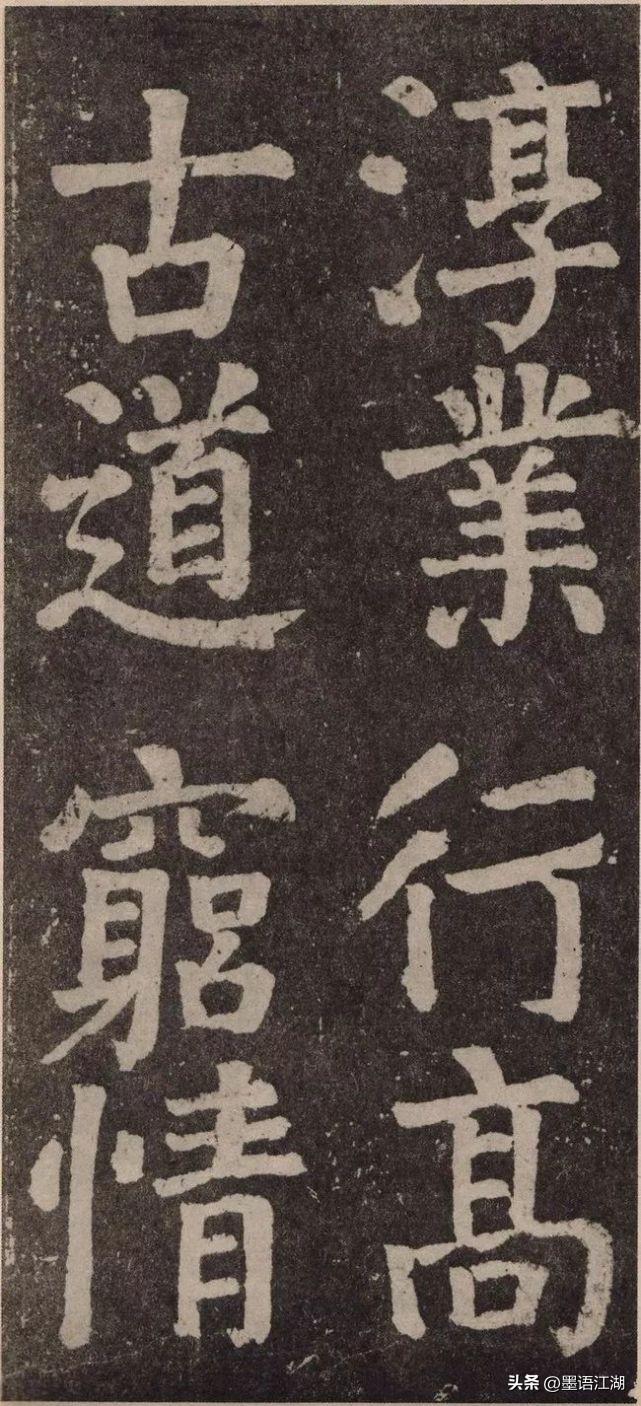 淳業行高
古道窮情
头条 @墨语江湖